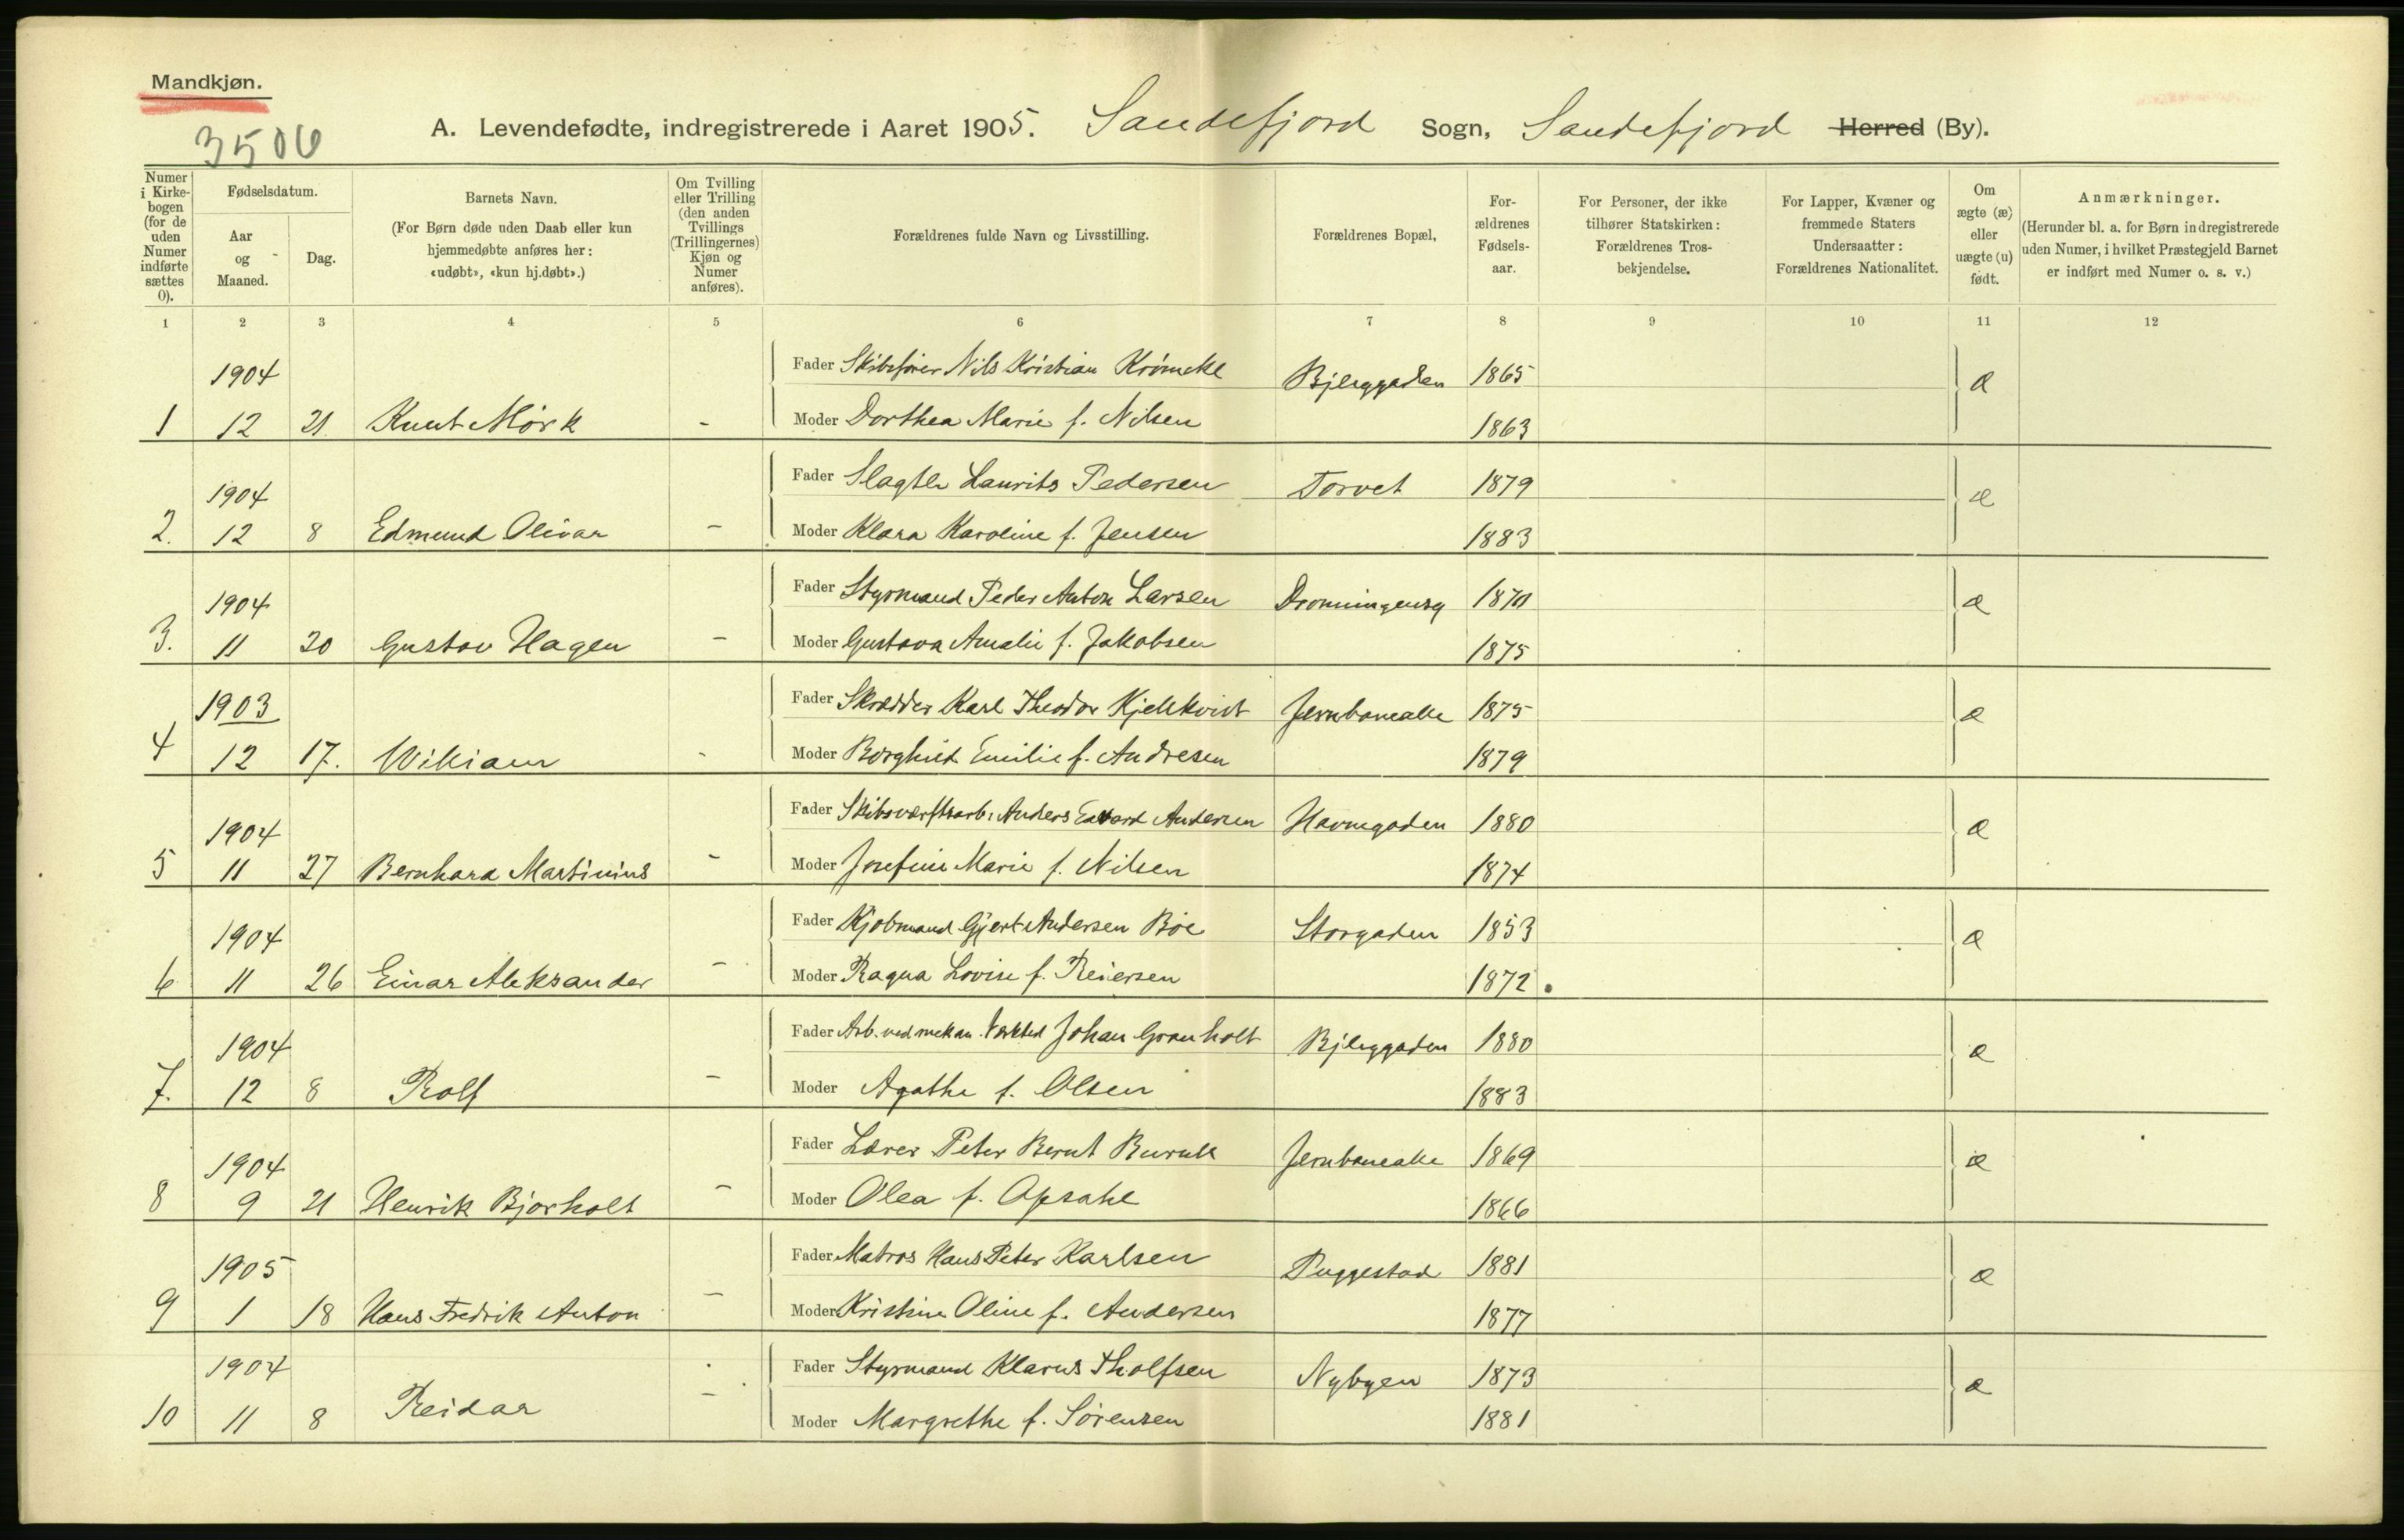 Mandkjøn.
3506
A. Levendefødte, indregistrerede i Aaret 1905. Sandefjord Sogn, Sandefjord Herred (By).
Numer i Kirkebogen (for de uden Numer indførte sættes 0).
Fødselsdatum.
Aar og Maaned.
Dag.
Barnets Navn.
(For Børn døde uden Daab eller kun hjemmedøbte anføres her: «udøbt», «kun hj.døbt».)
Om Tvilling eller Trilling (den anden Tvillings (Trillingernes) Kjøn og Numer anføres).
Forældrenes fulde Navn og Livsstilling.
Forældrenes Bopæl,
Forældrenes Fødselsaar.
For Personer, der ikke tilhører Statskirken: Forældrenes Trosbekjendelse.
For Lapper, Kvæner og fremmede Staters Undersaatter: Forældrenes Nationalitet.
Om ægte (æ) eller uægte (u) født.
Anmærkninger.
(Herunder bl. a. for Børn indregistrerede uden Numer, i hvilket Præstegjeld Barnet er indført med Numer o. s. v.)
1 2 3 4 5 6 7 8 9 10 11 12
1904 Fader Skibsfører Nils Kristian Bjerggaden 1865 æ
1 12 21. Knut Mørk - Moder Dorthea Marie f. Nilsen 1863
1904 Fader Slagter Laurits Pedersen Torvet 1879 æ
2. 12 8 Edmund Olivar - Moder Klara Karoline f. Jensen 1883
1904 Fader Styrmand Peder Anton Larsen Dronningensg æ
3. 11 20 Gustav Hagen - Moder Gustava Amalie f. Jakobsen 1875
1903 Fader Skrædder Karl Theodor Kjellkvist Jernbanealle 1875 æ
4 12 17. William - Moder Borghild Emilie f. Andresen 1879
1904 Fader Skibsværftsarb. Anders Edvard Andersen Havnegaden 1880 æ
5 11 27 Bernhard Martinius - Moder Josefine Marie f. Nilsen 1874
1904 Fader Kjøbmand Gjert Andersen Bøe Storgaden 1853 æ
6 11 26 Einar Aleksander - Moder Ragna Lovise f. Reiersen 1872
1904 Fader Arb. ved mekan. Værksted Johan Granholt Bjerggaden 1880 æ
7. 12 8 Rolf - Moder Agathe f. Olsen 1883
1904 Fader Lærer Peter Bernt Jernbanealle 1869 æ
8 9 21 Henrik Bjorholt - Moder Olea f. Opsahl 1866
1905 Fader Matros Hans Peter Karlsen Puggestad 1881 æ
9 1 18 Hans Fredrik Anton - Moder Kristine Oline f. Andersen 1877
1904 Fader Styrmand Klarus Tholfsen Nybyen 1873 æ
10 11 8 Reidar - Moder Margrethe f. Sørensen 1881